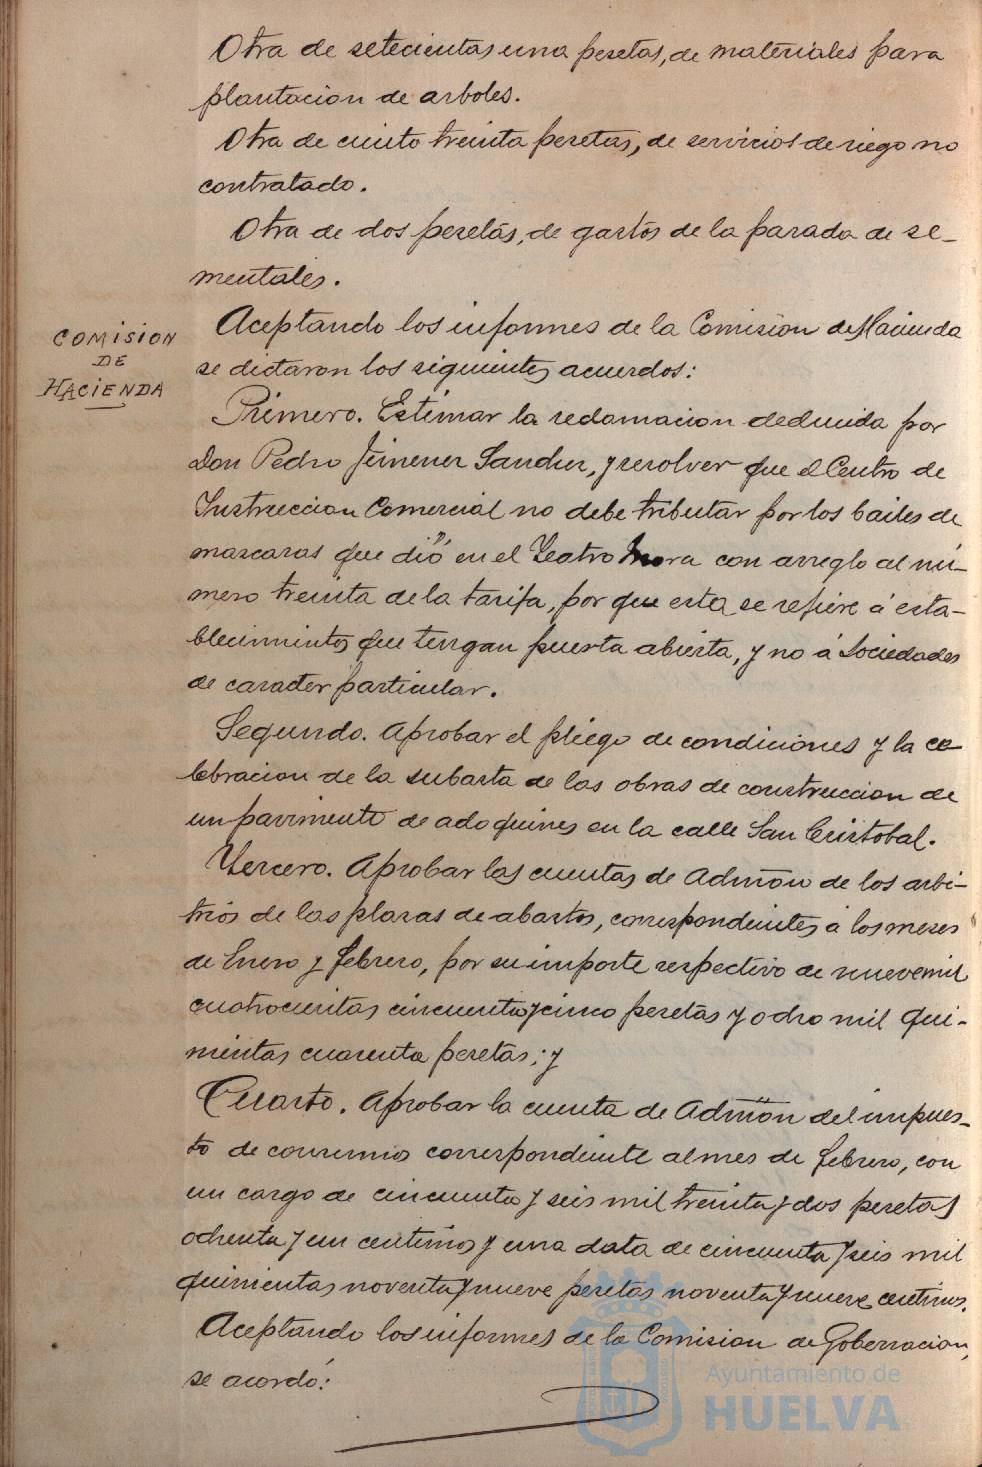 Otra de setecientas una pesetas, de materiales para
plantacion de arboles.
Otra de ciento treinta pesetas, de servicios de riego no
contratado.
Otra de dos pesetas, de gastos de la parada de se-
mentales.
COMISION
DE
HACIENDA
Aceptando los informes de la Comision de Hacienda
se dictaron los siguientes acuerdos:
Primero. Estimar la reclamacion deducida por
Don Pedro Jimenez Sanchez, y resolver que el Centro de
Instruccion Comercial no debe tributar por los bailes de
mascaras que dió en el Teatro Mora con arreglo al nú-
mero treinta de la tarifa, por que esta se refiere á esta-
blecimientos que tengan puerta abierta, y no á Sociedades
de caracter particular.
Segundo. Aprobar el pliego de condiciones y la ce-
lebracion de la subasta de las obras de construccion de
un pavimento de adoquines en la calle San Cristobal.
Tercero. Aprobar las cuentas de Admon de los arbi-
trios de las plazas de abastos, correspondientes á los meses
de Enero y Febrero, por su importe respectivo de nueve mil
cuatrocientas cincuenta y cinco pesetas y ocho mil qui-
nientas cuarenta pesetas; y
Cuarto. Aprobar la cuenta de Admon del impues-
to de consumos correspondiente al mes de Febrero, con
un cargo de cincuenta y seis mil treinta y dos pesetas
ochenta y un centimos y una data de cincuenta y seis mil
quinientas noventa y nueve pesetas noventa y nueve centimos.
Aceptando los informes de la Comision de Gobernacion,
se acordó:
Ayuntamiento de
HUELVA